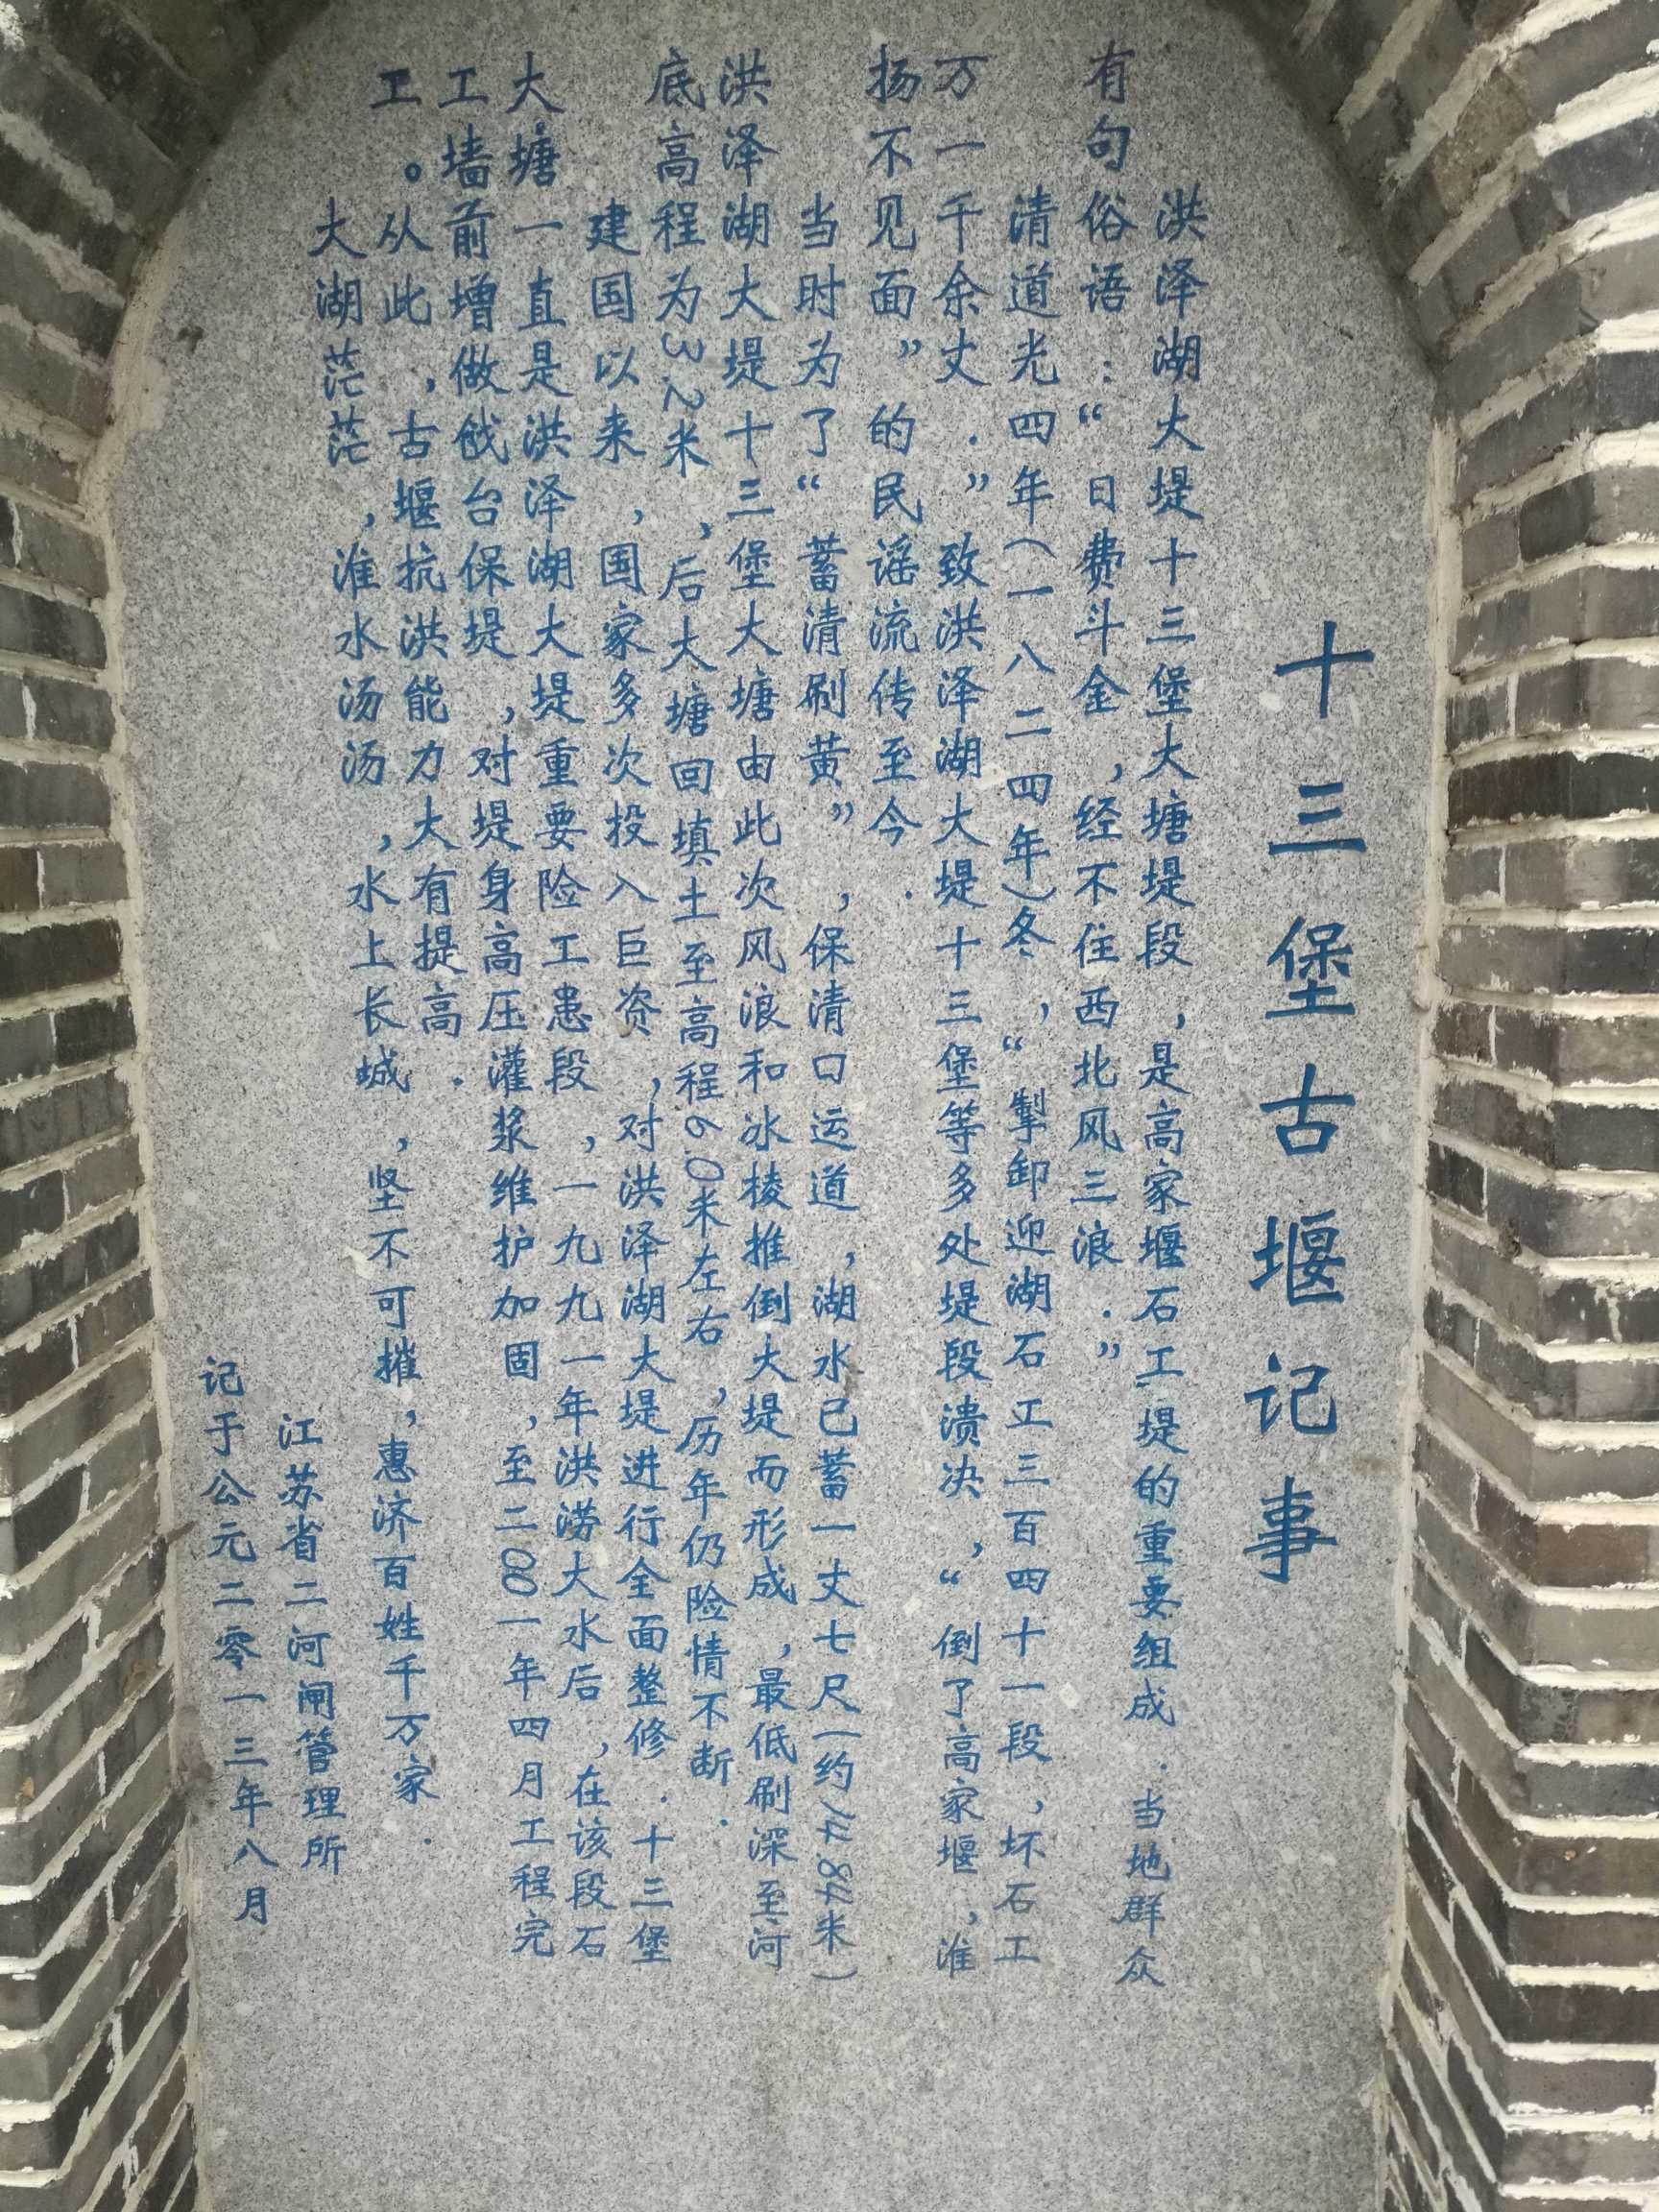 十三堡古堰记事
洪泽湖大堤十三堡大塘堤段，是高家堰石工堤的重要组成．当地群众
有句俗语：“日费斗金，经不住西北风三浪．”
清道光四年(一八二四年)冬，“掣卸迎湖石工三百四十一段，坏石工
万一千余丈．”致洪泽湖大堤十三堡等多处堤段溃决，“倒了高家堰，淮
扬不见面”的民谣流传至今．
当时为了“蓄清刷黄”，保清口运道，湖水已蓄一丈七尺(约14.84米)
洪泽湖大堤十三堡大塘由此次风浪和冰棱推倒大堤而形成，最低刷深至河
底高程为3.2米，后大塘回填土至高程6.0米左右，历年仍险情不断．
建国以来，国家多次投入巨资，对洪泽湖大堤进行全面整修．十三堡
大塘一直是洪泽湖大堤重要险工患段，一九九一年洪涝大水后，在该段石
工墙前增做戗台保堤，对堤身高压灌浆维护加固，至二00一年四月工程完
工。从此，古堰抗洪能力大有提高．
大湖茫茫，淮水汤汤，水上长城，坚不可摧，惠济百姓千万家．
江苏省二河闸管理所
记于公元二零一三年八月